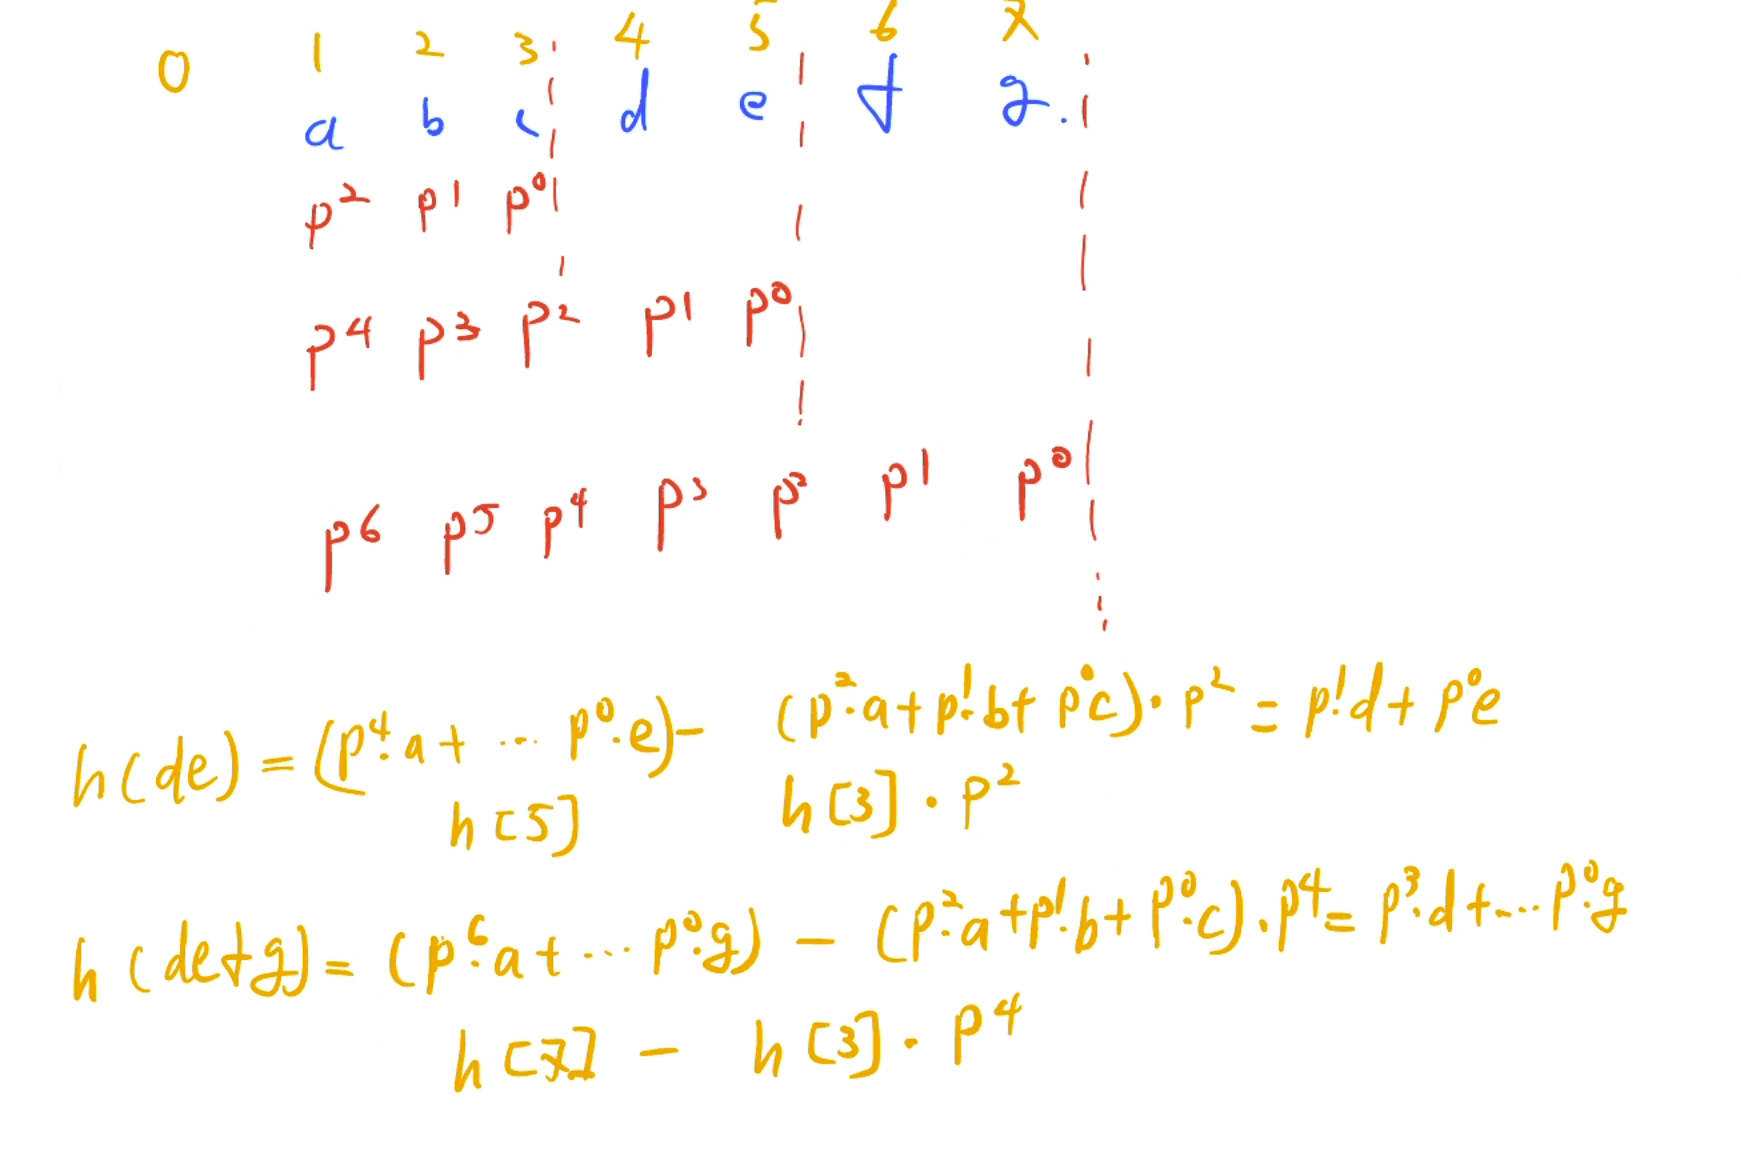 0 1 2 3 4 5 6 7
a b c d e f g.
p² p¹ p⁰
p⁴ p³ p² p¹ p⁰
p⁶ p⁵ p⁴ p³ p² p¹ p⁰
h(de) = (p⁴·a + ... p⁰·e) - (p²·a + p¹·b + p⁰c)·p² = p¹·d + p⁰e
h[5] h[3]·p²
h(defg) = (p⁶·a + ... p⁰·g) - (p²·a + p¹·b + p⁰·c)·p⁴ = p³·d + ... p⁰·g
h[7] - h[3]·p⁴